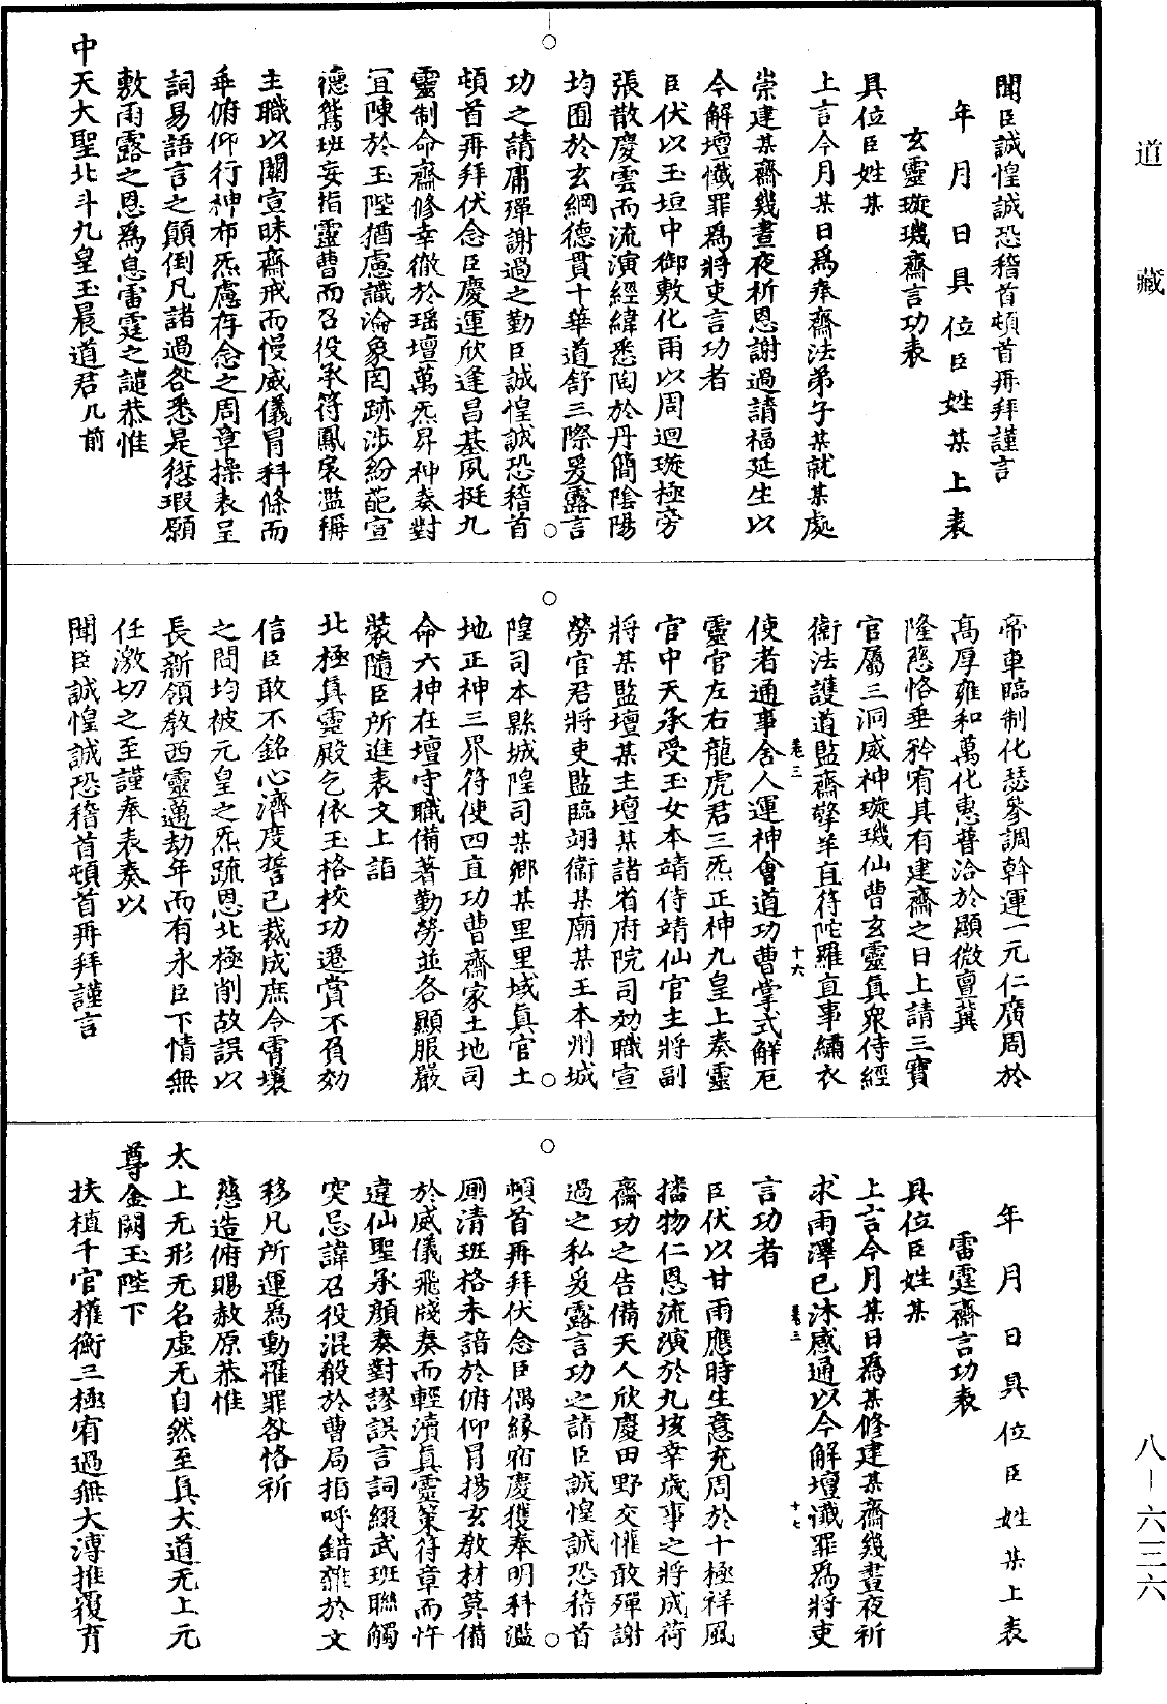 聞臣誠惶誠恐稽首頓首再拜謹言
年月日具位臣姓某上表
玄靈璇璣齋言功表
具位臣姓某
上言今月某日為奉齋法弟子某就某處
崇建某齋幾晝夜祈恩謝過請福延生以
今解壇懺罪為將吏言功者
臣伏以玉垣中御敷化甫以周迴璇極旁
張散慶雲而流演經緯悉陶於丹簡陰陽
均囿於玄綱德貫十華道舒三際爰露言
功之請庸殫謝過之勤臣誠惶誠恐稽首
頓首再拜伏念臣慶運欣逢昌基夙挺九
靈制命齋修幸徹於瑶壇萬炁昇神奏對
冝陳於玉陛猶慮識淪象罔跡涉紛葩宣
德鵞班妄指靈曹而召役承符鳳扆濫稱
主職以關宣昧齋戒而慢威儀冒科條而
乖俯仰行神布炁慮存念之周章操表呈
詞易語言之顛倒凡諸過咎悉是愆瑕願
敷雨露之恩為息雷霆之譴恭惟
中天大聖北斗九皇玉晨道君几前
帝車臨制化瑟參調幹運一元仁廣周於
高厚雍和萬化惠普洽於顯微亶冀
隆慈恪垂矜宥具有建齋之日上請三寶
官屬三洞威神璇璣仙曹玄靈真衆侍經
衛法護道監齋擎羊直符陀羅直事繡衣
卷三 十六
使者通事舍人運神會道功曹掌式解厄
靈官左右龍虎君三炁正神九皇上奏靈
官中天承受玉女本靖侍靖仙官主將副
將某監壇某主壇某諸省府院司効職宣
勞官君將吏監臨翊衛某廟某王本州城
隍司本縣城隍司某鄉某里里域真官土
地正神三界符使四直功曹齋家土地司
命六神在壇守職備著勤勞並各顯服嚴
裝隨臣所進表文上詣
北極真靈殿乞依玉格校功遷賞不負効
信臣敢不銘心濟度誓己裁成庶令霄壤
之間均被元皇之炁疏恩北極削故誤以
長新領教西靈邁劫年而有永臣下情無
任激切之至謹奉表奏以
聞臣誠惶誠恐稽首頓首再拜謹言
年月日具位臣姓某上表
雷霆齋言功表
具位臣姓某
上言今月某日為某修建某齋幾晝夜祈
求雨澤已沐感通以今解壇讖罪為將吏
卷三 十七
言功者
臣伏以甘雨應時生意充周於十極祥風
播物仁恩流演於九垓幸歲事之將成荷
齋功之告備天人欣慶田野交懽敢殫謝
過之私爰露言功之請臣誠惶誠恐稽首
頓首再拜伏念臣偶緣宿慶獲奉明科濫
厠清班格未諳於俯仰冒揚玄教材莫備
於威儀飛牋奏而輕瀆真靈策符章而忤
違仙聖承顔奏對謬誤言詞綴武班聯觸
突忌諱召役混殽於曹局指呼錯雜於文
移凡所運為動罹罪咎恪祈
慈造俯賜赦原恭惟
太上无形无名虛无自然至真大道无上元
尊金闕玉陛下
扶植千官權衡三極宥過無大溥推覆育
道藏
八-六三六